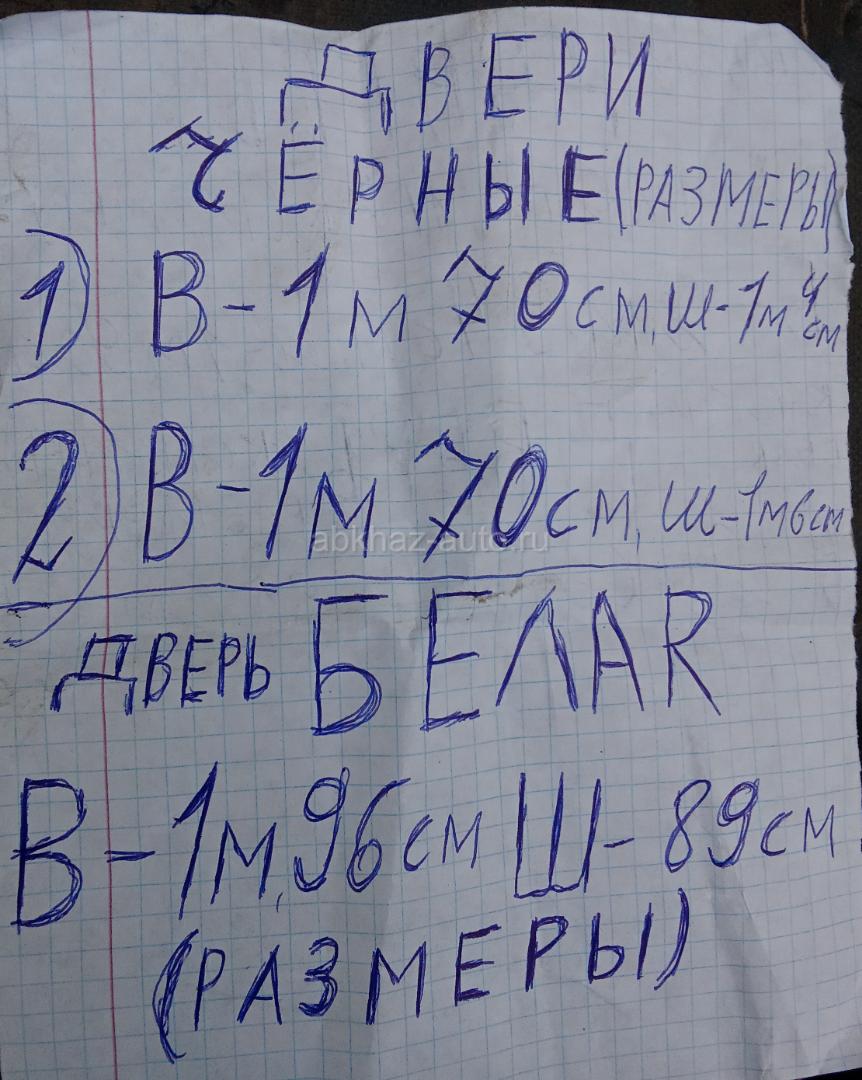 ДВЕРИ
ЧЁРНЫЕ (РАЗМЕРЫ)
1) В-1м 70см, Ш-1м 4см
2) В-1м 70см, Ш-1м6см
abkhaz-auto.ru
ДВЕРЬ БЕЛАЯ
В-1м,96см Ш-89см
(РАЗМЕРЫ)